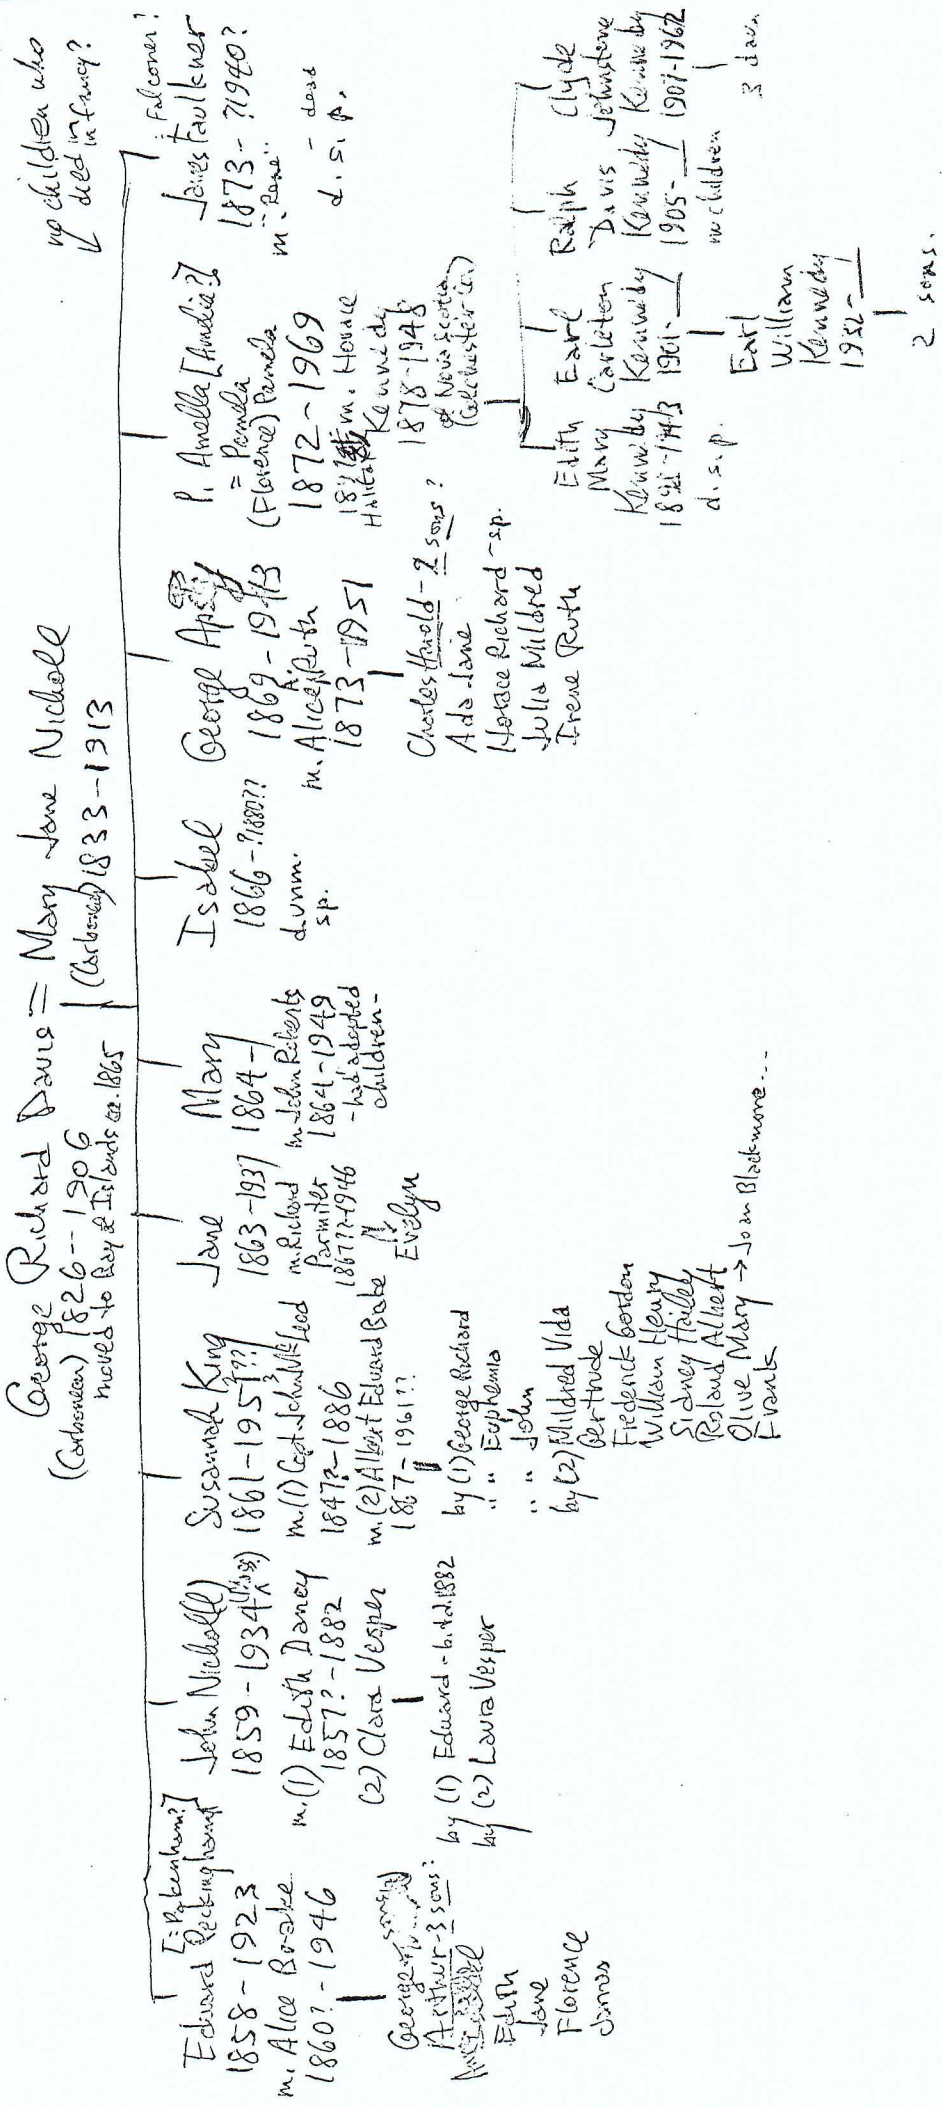 George Richard Davis = Mary Jane Nicholl
(Carbonear) 1826 - 1906
(Carbonear) 1833-1913
moved to Bay of Islands ca. 1865
no children who
died in
infancy?
[:Pakenham?]
Edward Peckingham
1858 - 1923
m. Alice Brake
1860? - 1946
George
Arthur - 3 sons?
Edith
Jane
Florence
James
John Nichol(l)
1859 - 1934
m. (1) Edith Dancy
1857? - 1882
(2) Clara Vesper
by (1) Edward - b.+d. 1882
by (2) Laura Vesper
Susannah King
1861-195???
m. (1) Capt. John McLeod
1847? - 1886
m. (2) Albert Edward Brake
1867 - 1961??
by (1) George Richard
" " Euphemia
" " John
by (2) Mildred Vida
Gertrude
Frederick Gordon
William Henry
Sidney Hailey
Roland Albert
Olive Mary → Joan Blackmore...
Frank
Jane
1863-1937
m. Richard
Parmiter
186???-1946
Evelyn
Mary
1864-
m. John Roberts
1864-1949
- had adopted
children -
Isabel
1866-?1880??
d. unm.
sp.
George
1869-1943
m. Alice A. Ruth
1873-1951
Charles Harold - 2 sons?
Ada Jane
Horace Richard - sp.
Julia Mildred
Irene Ruth
P. Amella [Amelia?]
= Pamela
(Florence) Pamela
1872 - 1969
m. Horace
Halifax Kennedy
1878-1948
of Nova Scotia
(Colchester Co.)
Edith
Mary
Kennedy
d.s.p.
Earl
Carleton
Kennedy
1901-
Earl
William
Kennedy
1932-
2 sons.
Ralph
Davis
Kennedy
1905-
no children
Clyde
Johnstone
Kennedy
1907-1962
3 daus.
: Falconer?
James Faulkner
1873 - ?1940?
m. "Rene"
- dead
d.s.p.